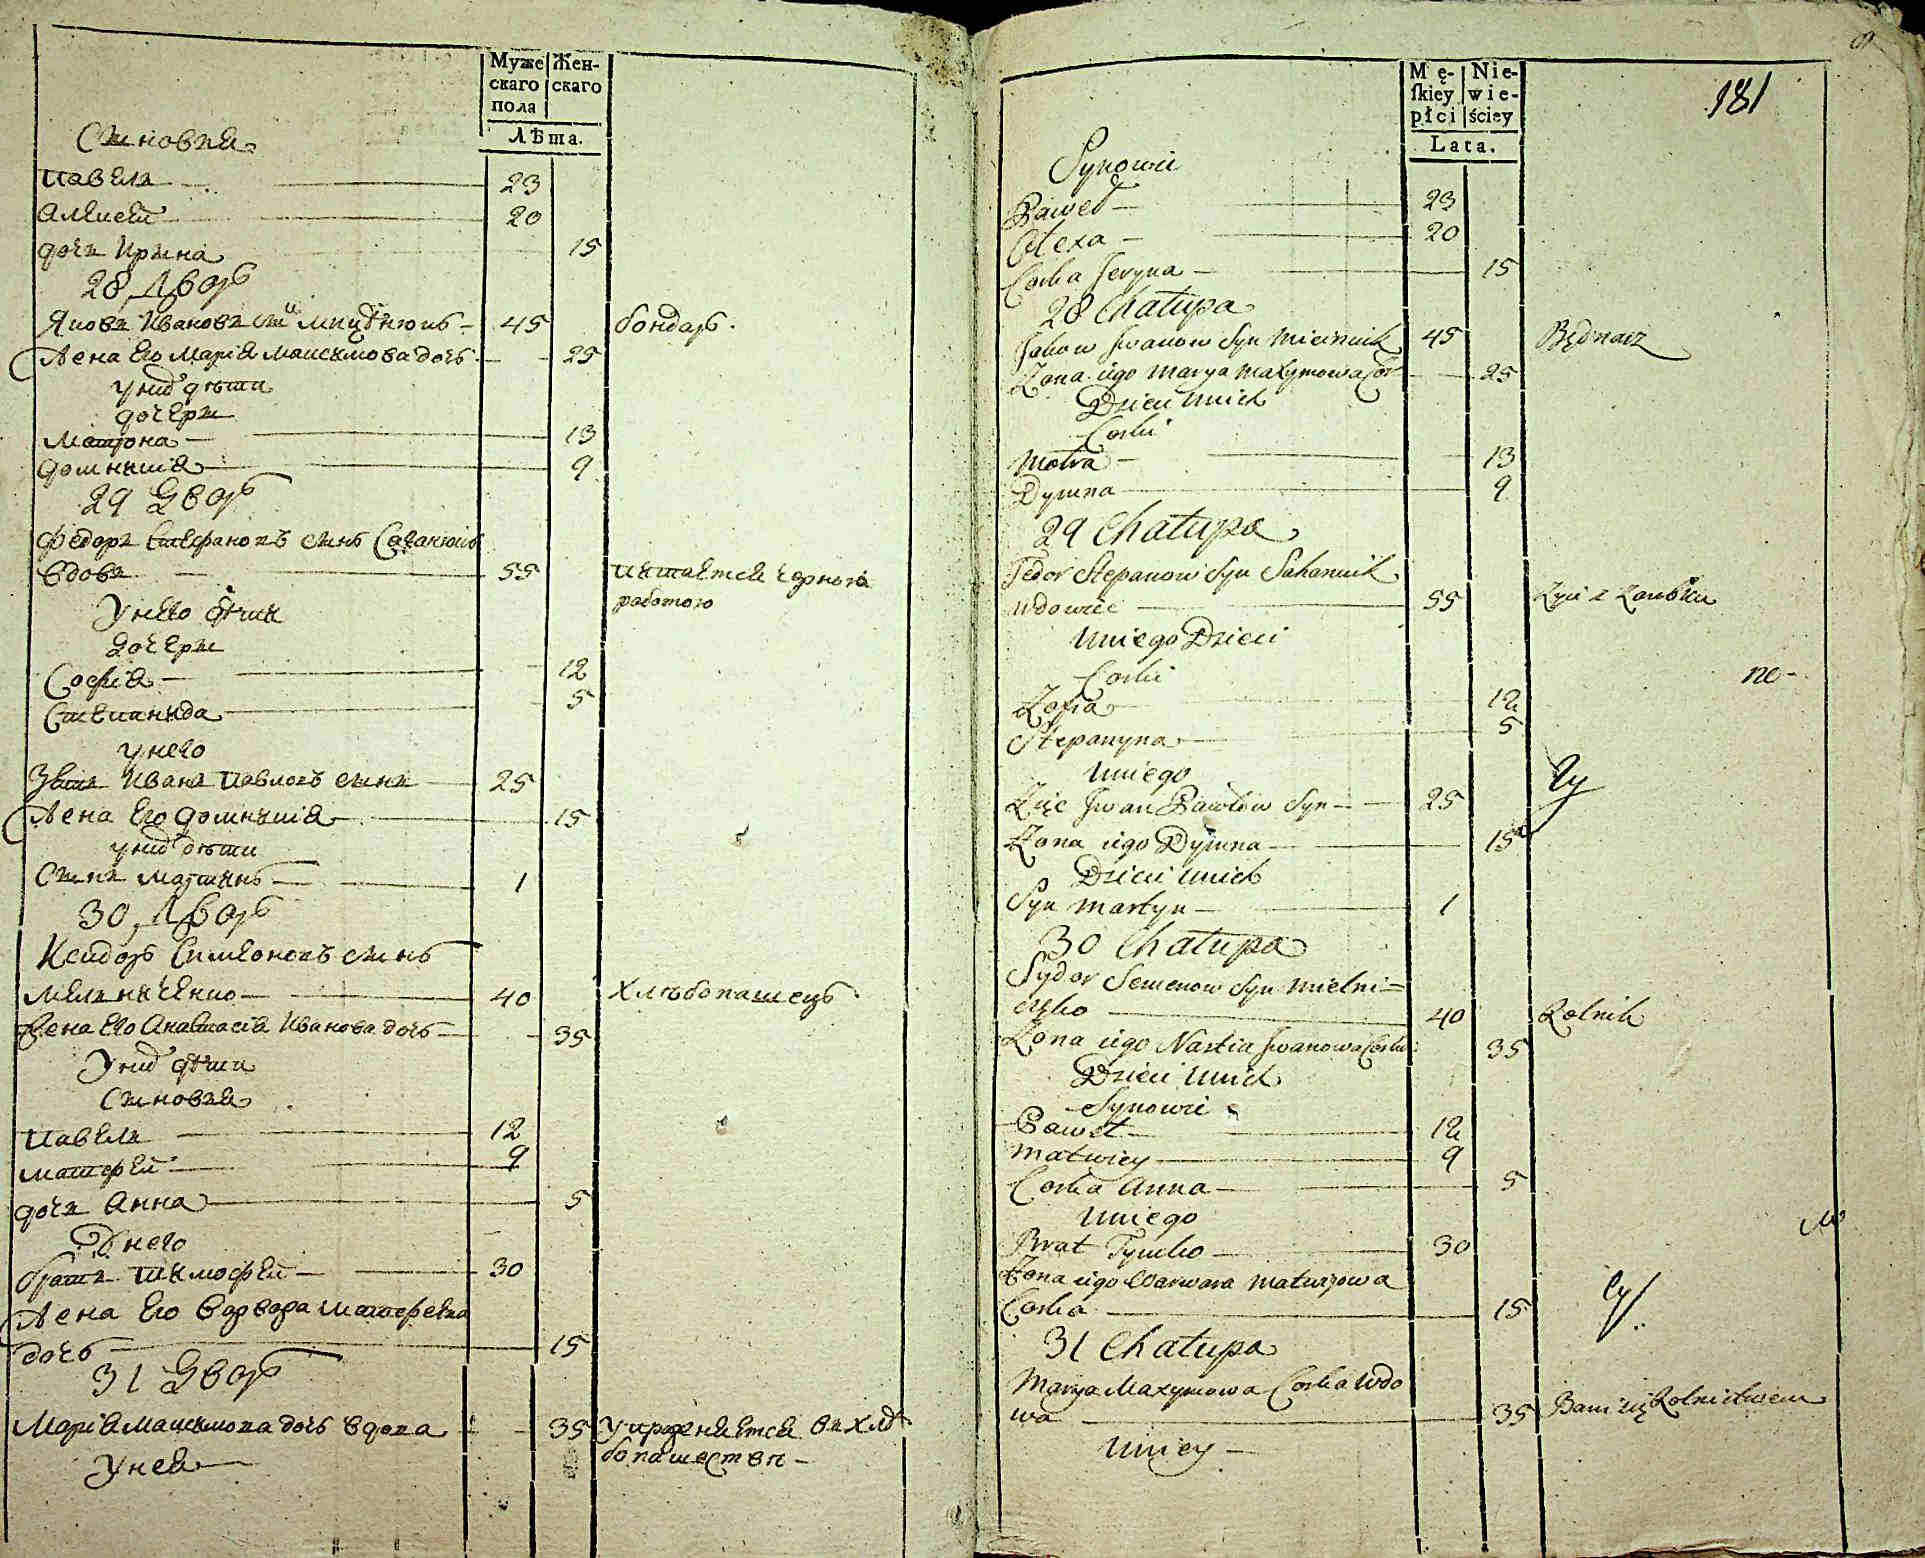 Муже
скаго
пола
Жен-
скаго
Лѣта.
Сыновья
Павелъ 23
Алексей 20
дочь Ирина 15
28 Дворъ
Яковъ Ивановъ сынъ 45 бондарь.
Жена его Марія Максимова дочь 25
у них дѣти
дочери
Матрона 13
Домникія 9
29 Дворъ
Федоръ Стефановъ сынъ Саханюкъ
вдовъ 55 питается черною
работою
У него дѣти
дочери
Софія 12
Степанида 5
у него
Зять Иванъ Павловъ сынъ 25
Жена его Домникія 15
у них дѣти
Сынъ Мартинъ 1
30 Дворъ
Исидоръ Симеоновъ сынъ
Мельниченко 40 Хлѣбопашецъ
Жена его Анастасія Иванова дочь 35
У них дѣти
Сыновья
Павелъ 12
Матфей 9
дочь Анна 5
У него
братъ Тимофей 30
Жена его Варвара Матфеева
дочь 15
31 Дворъ
Марія Максимова дочь вдова 35 Упражняется въ хлѣ
бопашествѣ
У нея
181
Mę-
ſkiey
płci
Nie-
wie-
ściey
Lata.
Synowie
Paweł 23
Olexa 20
Corka Jeryna 15
28 Chałupa
Jakow Jwanow Syn Miciniuk 45 Będnarz
Żona iego Marya Maxymowa Cor 25
Dzieci Unich
Corki
Motra 13
Dymna 9
29 Chałupa
Fedor Stepanow Syn Sahaniuk
Wdowiec 55 Żyie z Zarobku
Uniego Dzieci
Corki
Zofia 12
Stepanyna 5
Uniego
Zięć Jwan Pawłow Syn 25
Żona iego Dymna 15
Dzieci Unich
Syn Martyn 1
30 Chałupa
Sydor Semenow Syn Mielni=
czko 40 Rolnik
Żona iego Nastia Jwanowa Corka 35
Dzieci Unich
Synowie
Paweł 12
Matwiey 9
Corka Anna 5
Uniego
Brat Tymko 30
Żona iego Warwara Matwijowa
Corka 15
31 Chałupa
Marya Maxymowa Corka Wdo
wa 35 Bawi się Rolnictwem
Uniey